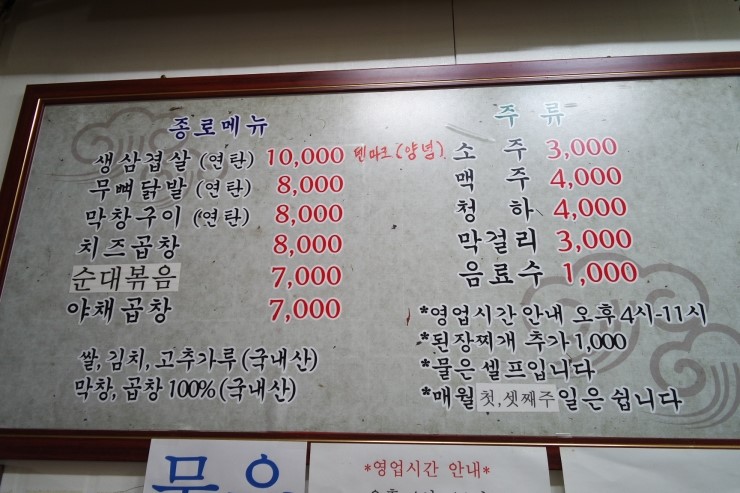 종로메뉴
생삼겹살 (연탄) 10,000 덴마크(양념).
무뼈닭발 (연탄) 8,000
막창구이 (연탄) 8,000
치즈곱창 8,000
순대볶음 7,000
야채곱창 7,000
쌀, 김치, 고추가루 (국내산)
막창, 곱창 100% (국내산)
주 류
소 주 3,000
맥 주 4,000
청 하 4,000
막걸리 3,000
음료수 1,000
*영업시간 안내 오후 4시-11시
*된장찌개 추가 1,000
*물은 셀프입니다
*매월 첫,셋째주 일은 쉽니다
*영업시간 안내*